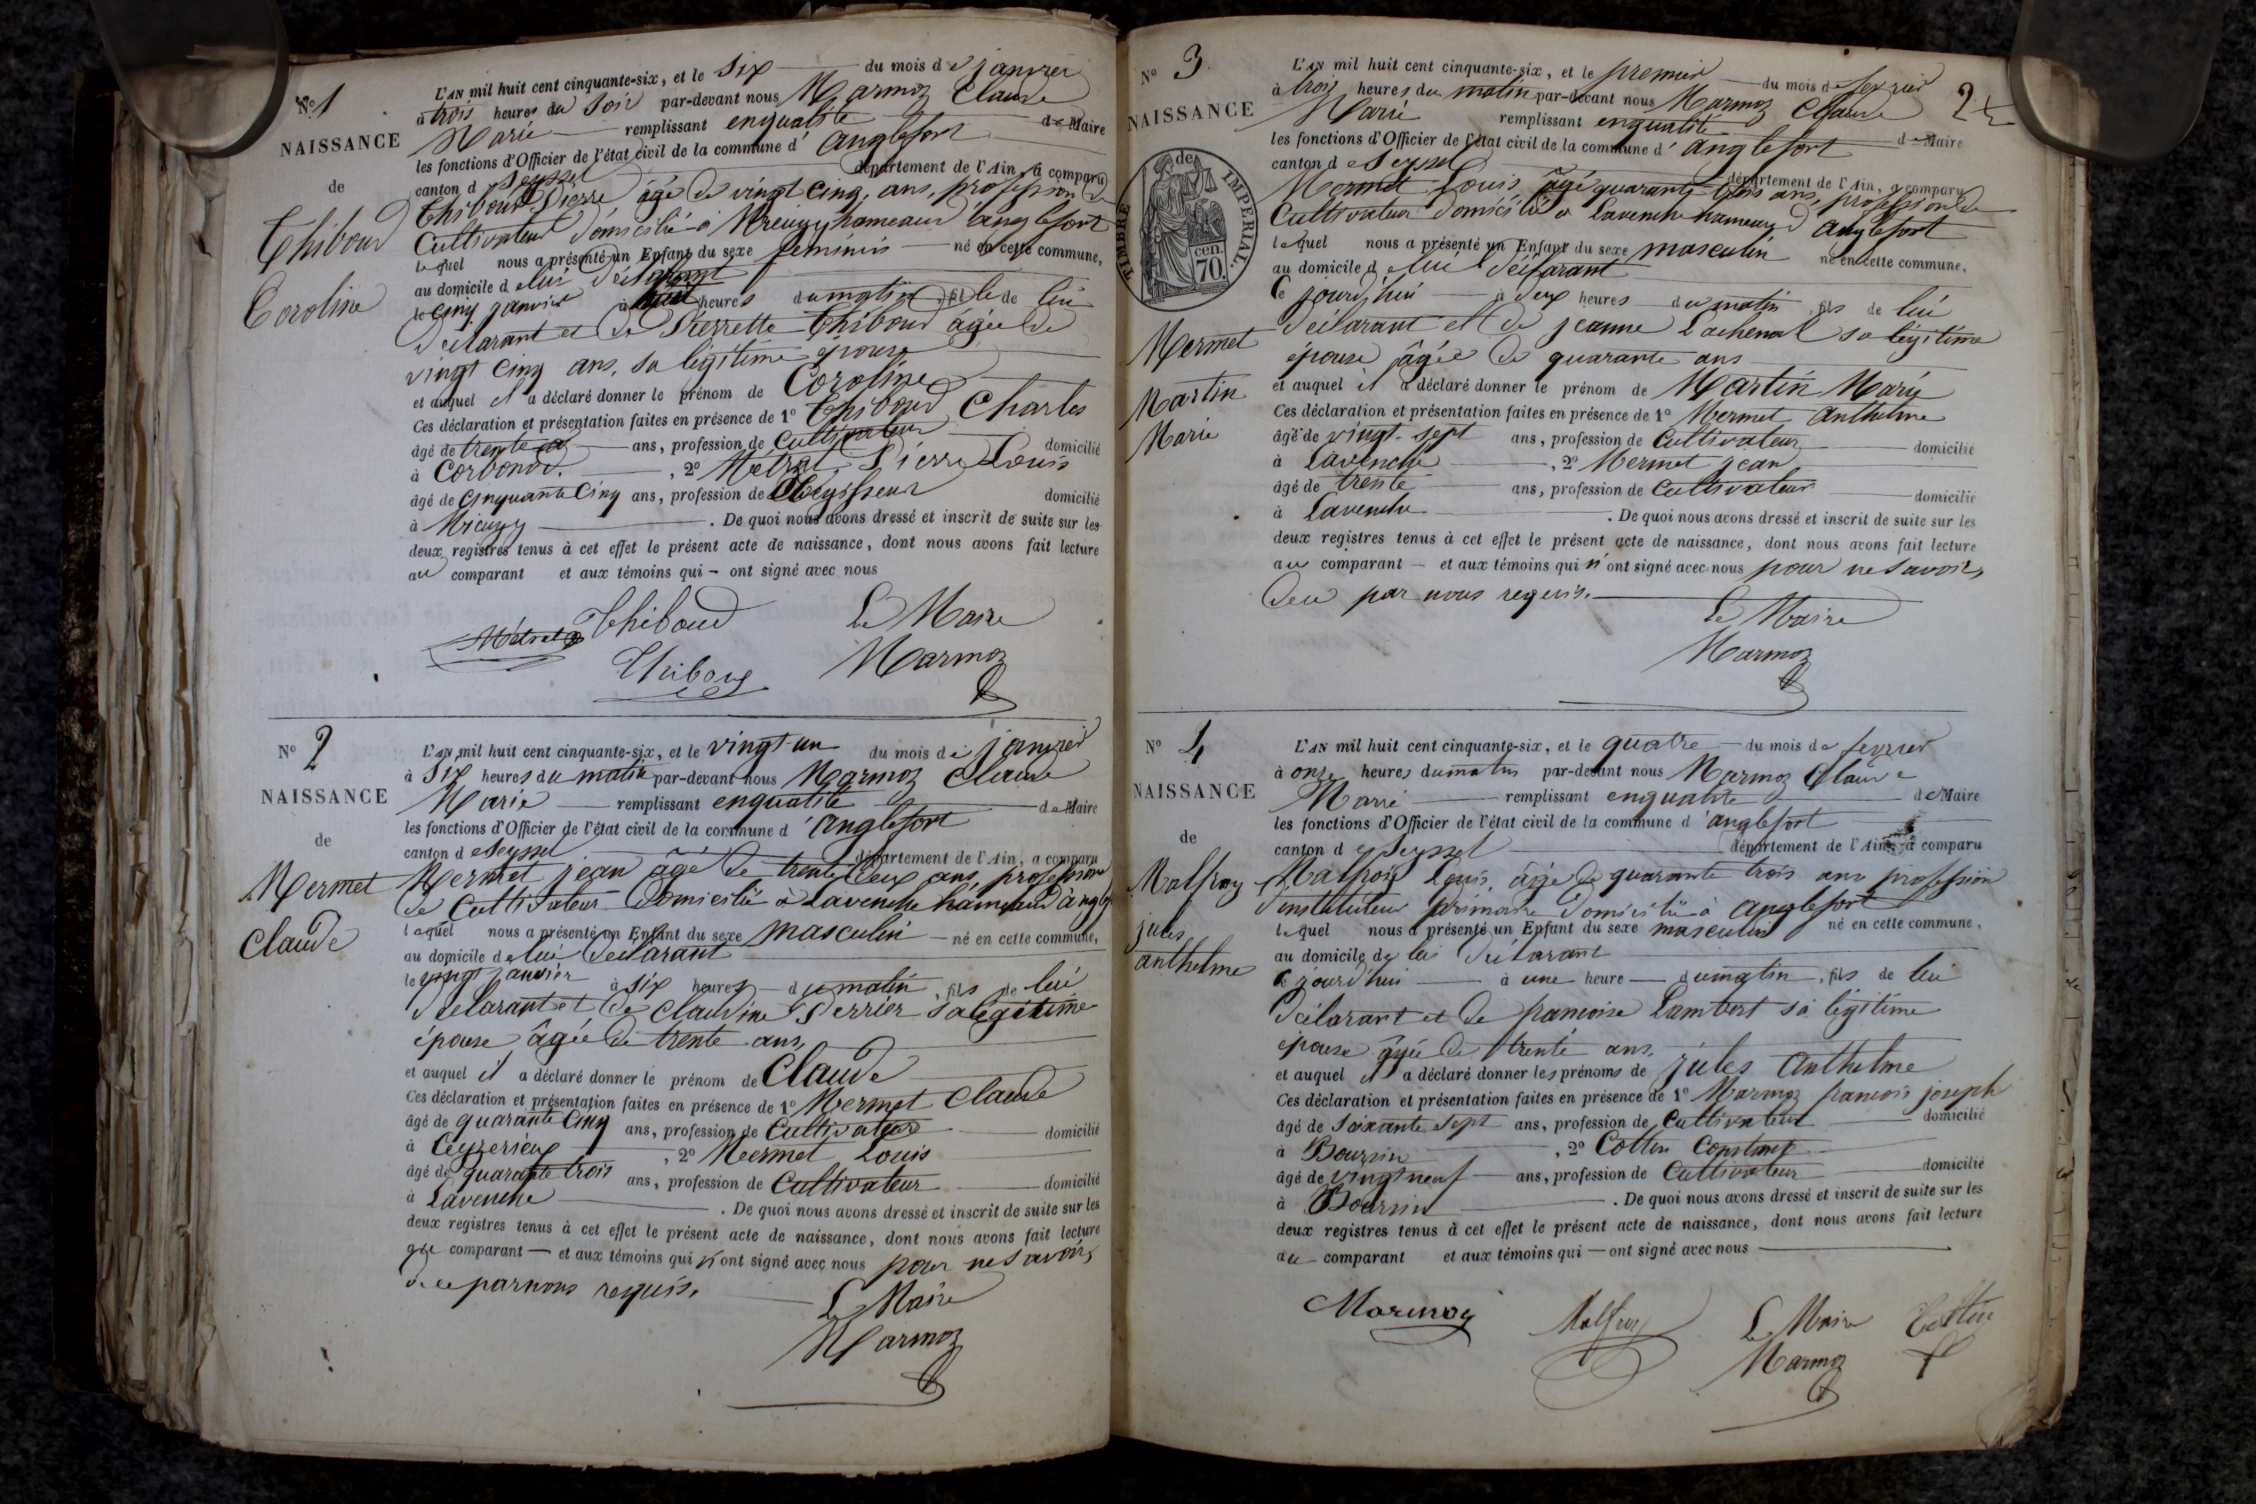 N° 1
NAISSANCE
de
Thiboud
Coroline
L'AN mil huit cent cinquante-six, et le Six du mois de janvier
à trois heures du Soir par-devant nous Marmoz Claude
Marie remplissant enqualité de Maire
les fonctions d'Officier de l'état civil de la commune d'anglefort
canton d Seyssel département de l'Ain, a comparu
Thiboud Pierre âgé de vingt cinq, ans, profession de
Cultivateur domicilié à hameau d'anglefort
lequel nous a présenté un Enfant du sexe feminin né en cette commune,
au domicile de lui déclarant
le cinq janvier à heures du matin, fille de lui
déclarant et de Pierrette Thiboud âgée de
vingt cinq ans, sa légitime épouse
et auquel il a déclaré donner le prénom de Coroline
Ces déclaration et présentation faites en présence de 1° Thiboud Charles
âgé de trente ans, profession de Cultivateur domicilié
à Corbonod, 2° Métral Pierre Louis
âgé de cinquante Cinq ans, profession de domicilié
à . De quoi nous avons dressé et inscrit de suite sur les
deux registres tenus à cet effet le présent acte de naissance, dont nous avons fait lecture
au comparant et aux témoins qui - ont signé avec nous
Métral Thiboud Le Maire
Thiboud Marmoz
N° 2
NAISSANCE
de
Mermet
Claude
L'AN mil huit cent cinquante-six, et le vingt-un du mois de janvier
à Six heures du matin par-devant nous Marmoz Claude
Marie remplissant enqualité de Maire
les fonctions d'Officier de l'état civil de la commune d'anglefort
canton de Seyssel département de l'Ain, a comparu
Mermet jean âgé de trente deux ans, profession
de Cultivateur domicilié à Lavenche hameau d'angl
lequel nous a présenté un Enfant du sexe masculin né en cette commune,
au domicile de lui déclarant
le vingt janvier à six heures du matin, fils de lui
déclarant et de claudine Perrier sa légitime
épouse âgée de trente ans,
et auquel il a déclaré donner le prénom de Claude
Ces déclaration et présentation faites en présence de 1° Mermet Claude
âgé de quarante Cinq ans, profession de Cultivateur domicilié
à Ceyzerieu, 2° Mermet Louis
âgé de quarante trois ans, profession de Cultivateur domicilié
à Lavenche . De quoi nous avons dressé et inscrit de suite sur les
deux registres tenus à cet effet le présent acte de naissance, dont nous avons fait lecture
comparant — et aux témoins qui n'ont signé avec nous pour ne savoir,
de ce par nous requis.
Le Maire
Marmoz
N° 3
NAISSANCE
TIMBRE IMPERIAL.
de
cen.
70.
Mermet
Martin
Marie
2
L'AN mil huit cent cinquante-six, et le premier du mois de fevrier
à trois heures du matin par-devant nous Marmoz Claude
Marie remplissant enqualité de Maire
les fonctions d'Officier de l'état civil de la commune d'anglefort
canton de Seyssel département de l'Ain, a comparu
Mermet Louis, âgé quarante trois ans, profession de
Cultivateur domicilié à Lavenche hameau d'anglefort
lequel nous a présenté un Enfant du sexe masculin né en cette commune,
au domicile de lui déclarant
Ce jourd'hui à deux heures du matin, fils de lui
déclarant et de jeanne Lachenal sa légitime
épouse âgée de quarante ans
et auquel il a déclaré donner le prénom de Martin Marie
Ces déclaration et présentation faites en présence de 1° Mermet Anthelme
âgé de vingt-sept ans, profession de Cultivateur domicilié
à Lavenche, 2° Mermet jean
âgé de trente ans, profession de Cultivateur domicilié
à Lavenche . De quoi nous avons dressé et inscrit de suite sur les
deux registres tenus à cet effet le présent acte de naissance, dont nous avons fait lecture
au comparant — et aux témoins qui n'ont signé avec nous pour ne savoir,
de ce par nous requis.
Le Maire
Marmoz
N° 4
NAISSANCE
de
Malfroy
jules
anthelme
L'AN mil huit cent cinquante-six, et le quatre du mois de fevrier
à onze heures du matin par-devant nous Marmoz Claude
Marie remplissant enqualité de Maire
les fonctions d'Officier de l'état civil de la commune d'anglefort
canton de Seyssel département de l'Ain, a comparu
Malfroy Louis, âgé de quarante trois ans profession
d'instituteur primaire domicilié à Anglefort
lequel nous a présenté un Enfant du sexe masculin né en cette commune,
au domicile de lui déclarant
Ce jourd'hui à une heure du matin, fils de lui
déclarant et de francoise Lambert sa légitime
épouse âgée de trente ans,
et auquel il a déclaré donner les prénoms de jules Anthelme
Ces déclaration et présentation faites en présence de 1° Marmoz francois joseph
âgé de soixante sept ans, profession de Cultivateur domicilié
à Boursin, 2° Cottin Constant
âgé de vingt neuf ans, profession de Cultivateur domicilié
à Boursin . De quoi nous avons dressé et inscrit de suite sur les
deux registres tenus à cet effet le présent acte de naissance, dont nous avons fait lecture
au comparant et aux témoins qui — ont signé avec nous
Marmoz Malfroy Le Maire Cottin
Marmoz